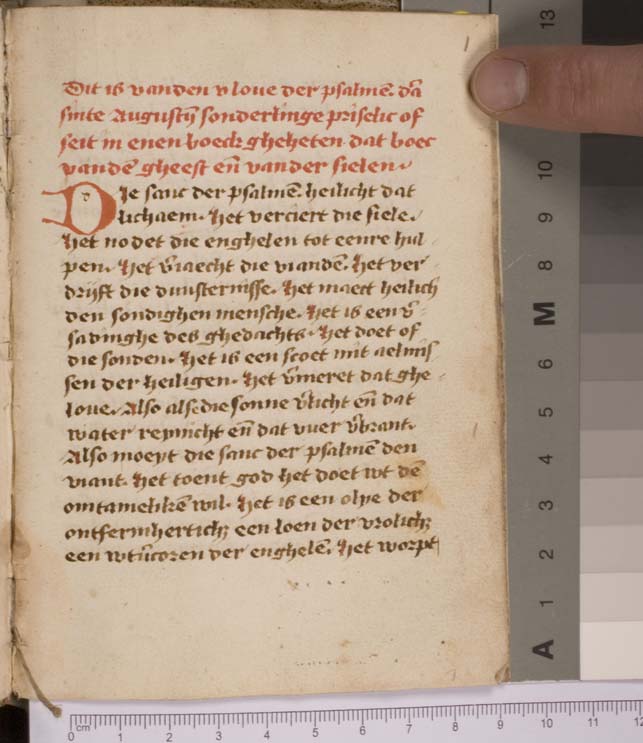 1
Dit is vanden v loue der psalmē. dā
sinte Augustÿ sonderlinge priselic of
seit in enen boeck gheheten dat boec
vandē gheest eñ vander sielen.
DIe sanc der psalmē. heilicht dat
lichaem. Het verciert die siele.
Het nodet die enghelen tot eenre hul
pen. Het v̄iaecht die viandē. Het ver
drijft die duusternisse. Het maect heilich
den sondighen mensche. Het is een v̄
sadinghe des ghedachts. Het doet of
die sonden. Het is een scoet mit aelmis
sen der heiligen. Het v̄meret dat ghe
loue. Also alsedie sonne v̄licht eñ dat
water reynicht eñ dat vuer v̄brant.
Also moeyt die sanc der psalmē den
viant. Het toent god het doet wt dē
omtamelikē wil. Het is een olye der
ontfermhertichꝫ een loen der vrolichꝫ
een wtv̄coren der enghelē. Het worpt
13
10
9
8
M
6
5
4
3
2
1
A
0 cm 1 2 3 4 5 6 7 8 9 10 11 12